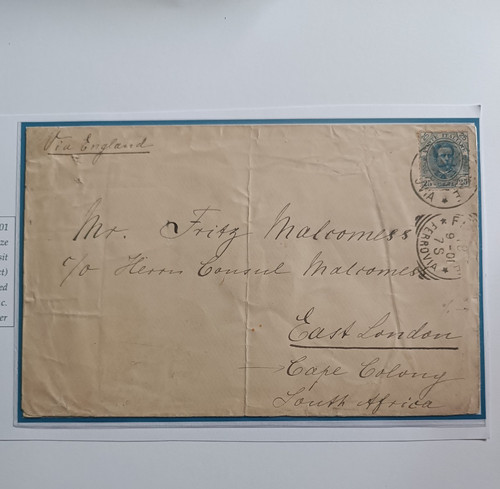 Via England
Mr. Fritz Malcomess
c/o Herrn Consul Malcomess
East London
Cape Colony
South Africa
25
FERROVIA
7 S
9-01
01
ze
sit
et)
ed
c.
er